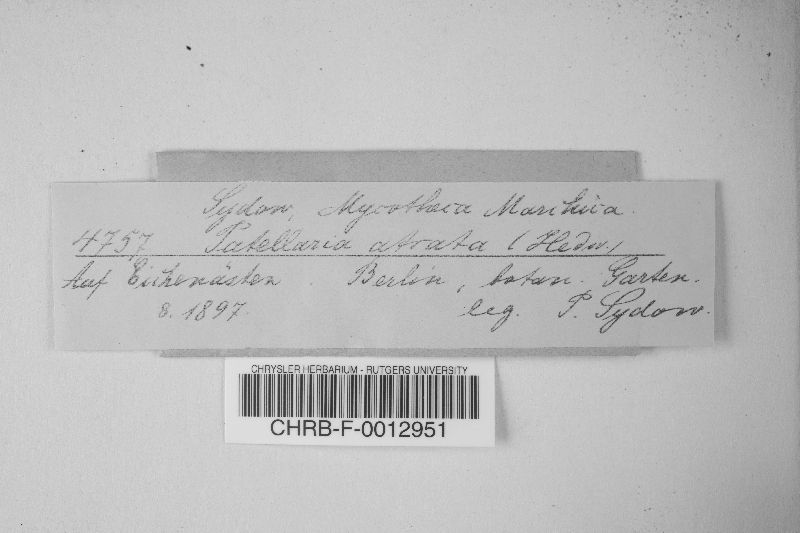 Sydow, Mycotheca Marchica.
4757 Patellaria atrata (Hedw.)
Auf Eichenästen. Berlin, botan. Garten.
8. 1897. leg. P. Sydow.
CHRYSLER HERBARIUM - RUTGERS UNIVERSITY
CHRB-F-0012951